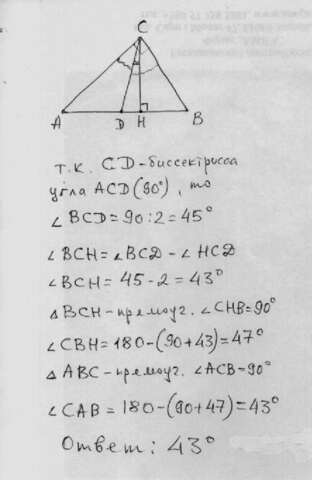 C
A D H B
т.к. CD-биссектрисса
угла ACD(90°), то
∠BCD=90:2=45°
∠BCH=∠BCD-∠HCD
∠BCH=45-2=43°
△BCH-прямоуг. ∠CHB=90°
∠CBH=180-(90+43)=47°
△ABC-прямоуг. ∠ACB=90°
∠CAB=180-(90+47)=43°
Ответ: 43°